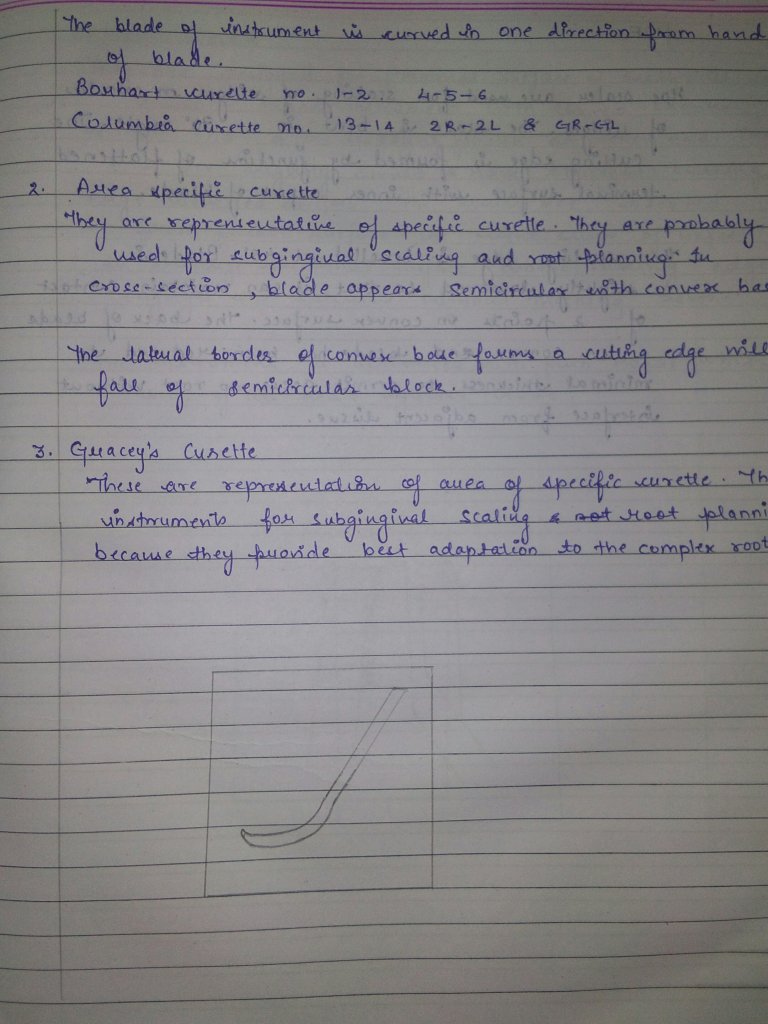 The blade of instrument is curved in one direction from hand
of blade.
Bouhart curette no. 1-2 4-5-6
Columbia Curette no. -13-14 2R-2L & GR-GL
2. Area specific curette
They are reprensentative of specific curette. They are probably
used for subgingival scaling and root planning. In
cross-section, blade appears semicircular with convex bas
The lateral border of convex base forms a cutting edge will
fall of semicircular block.
3. Gracey's Curette
These are representation of area of specific curette. Th
instruments for subgingival scaling & root planni
because they provide best adaptation to the complex root